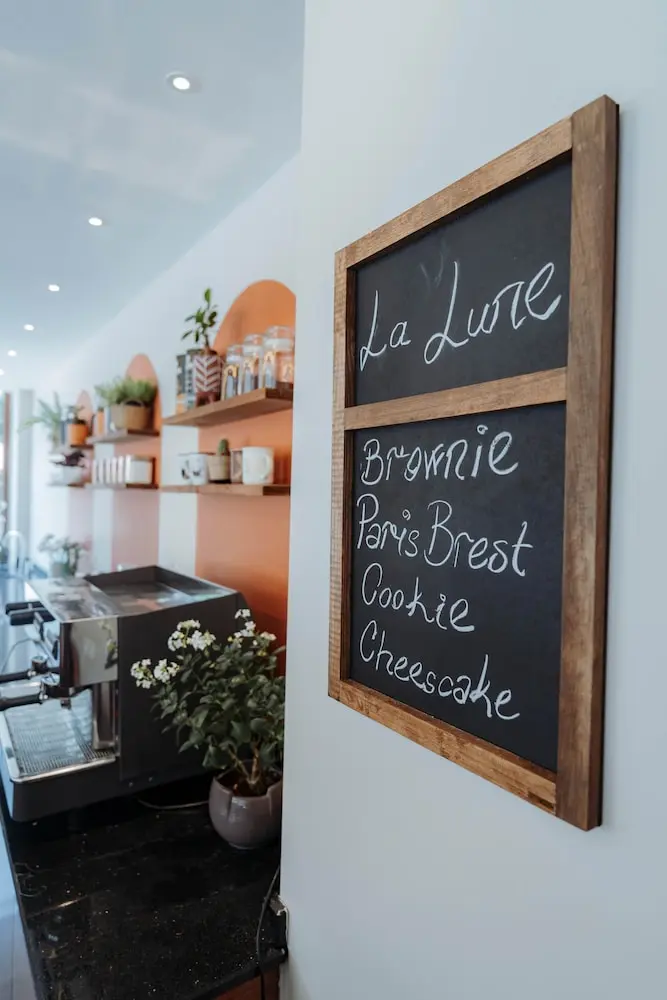 La Lune
Brownie
Paris Brest
Cookie
Cheescake